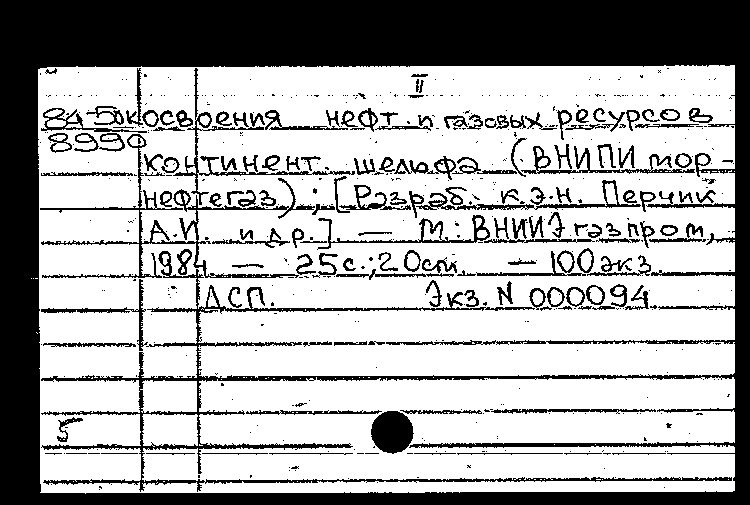 II
84-5дк освоения нефт. и газовых ресурсов
8990
континент. шельфа (ВНИПИмор-
нефтегаз); [Разраб. к.э.н. Перчик
А.И. и др.]. — М.: ВНИИЭгазпром,
1984. — 25 с.; 20 см. — 100 экз.
ДСП. Экз. N 000094
5